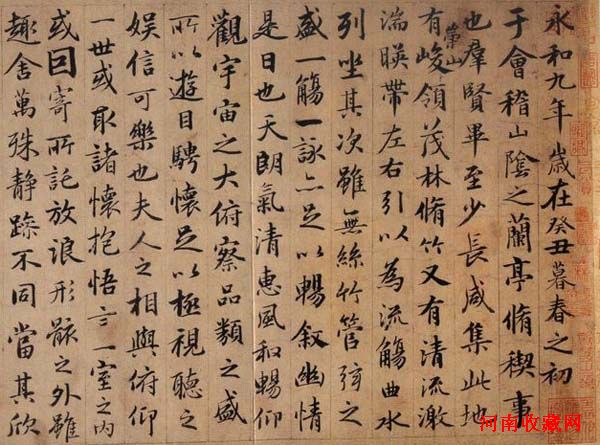 永和九年歲在癸丑暮春之初
于會稽山陰之蘭亭脩稧事
也羣賢畢至少長咸集此地
有崇山峻領茂林脩竹又有清流激
湍暎帶左右引以為流觴曲水
列坐其次雖無絲竹管弦之
盛一觴一詠亦足以暢叙幽情
是日也天朗氣清惠風和暢仰
觀宇宙之大俯察品類之盛
所以遊目騁懷足以極視聽之
娛信可樂也夫人之相與俯仰
一世或取諸懷抱悟言一室之內
或因寄所託放浪形骸之外雖
趣舍萬殊静躁不同當其欣
河南收藏网